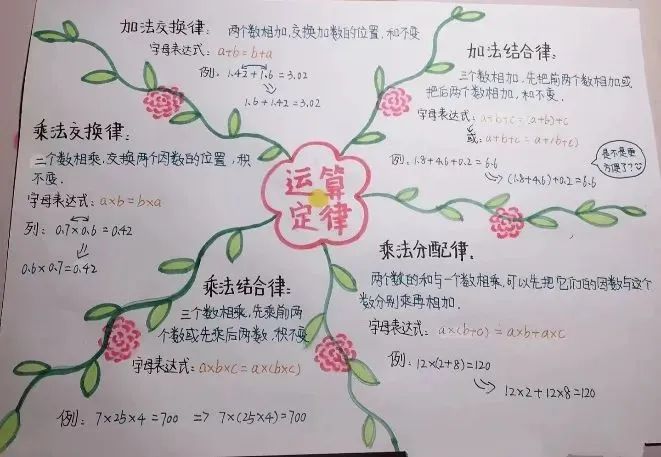 加法交换律:
两个数相加,交换加数的位置,和不变
字母表达式: a+b=b+a
例: 1.42+1.6=3.02
1.6+1.42=3.02
加法结合律:
三个数相加,先把前两个数相加或
把后两个数相加,和不变.
字母表达式: a+b+c=(a+b)+c
或: a+b+c=a+(b+c)
例: 1.8+4.6+0.2=6.6
(1.8+4.6)+0.2=6.6
是不是更
方便了?
乘法交换律:
二个数相乘,交换两个因数的位置,积
不变.
字母表达式: a×b=b×a
列: 0.7×0.6=0.42
0.6×0.7=0.42
运算
定律
乘法分配律.
两个数的和与一个数相乘,可以先把它们的因数与这个
数分别乘再相加.
字母表达式: a×(b+c)=a×b+a×c
例: 12×(2+8)=120
12×2+12×8=120
乘法结合律:
三个数相乘,先乘前两
个数或先乘后两数,积不变
字母表达式: a×b×c=a×(b×c)
例: 7×25×4=700 => 7×(25×4)=700